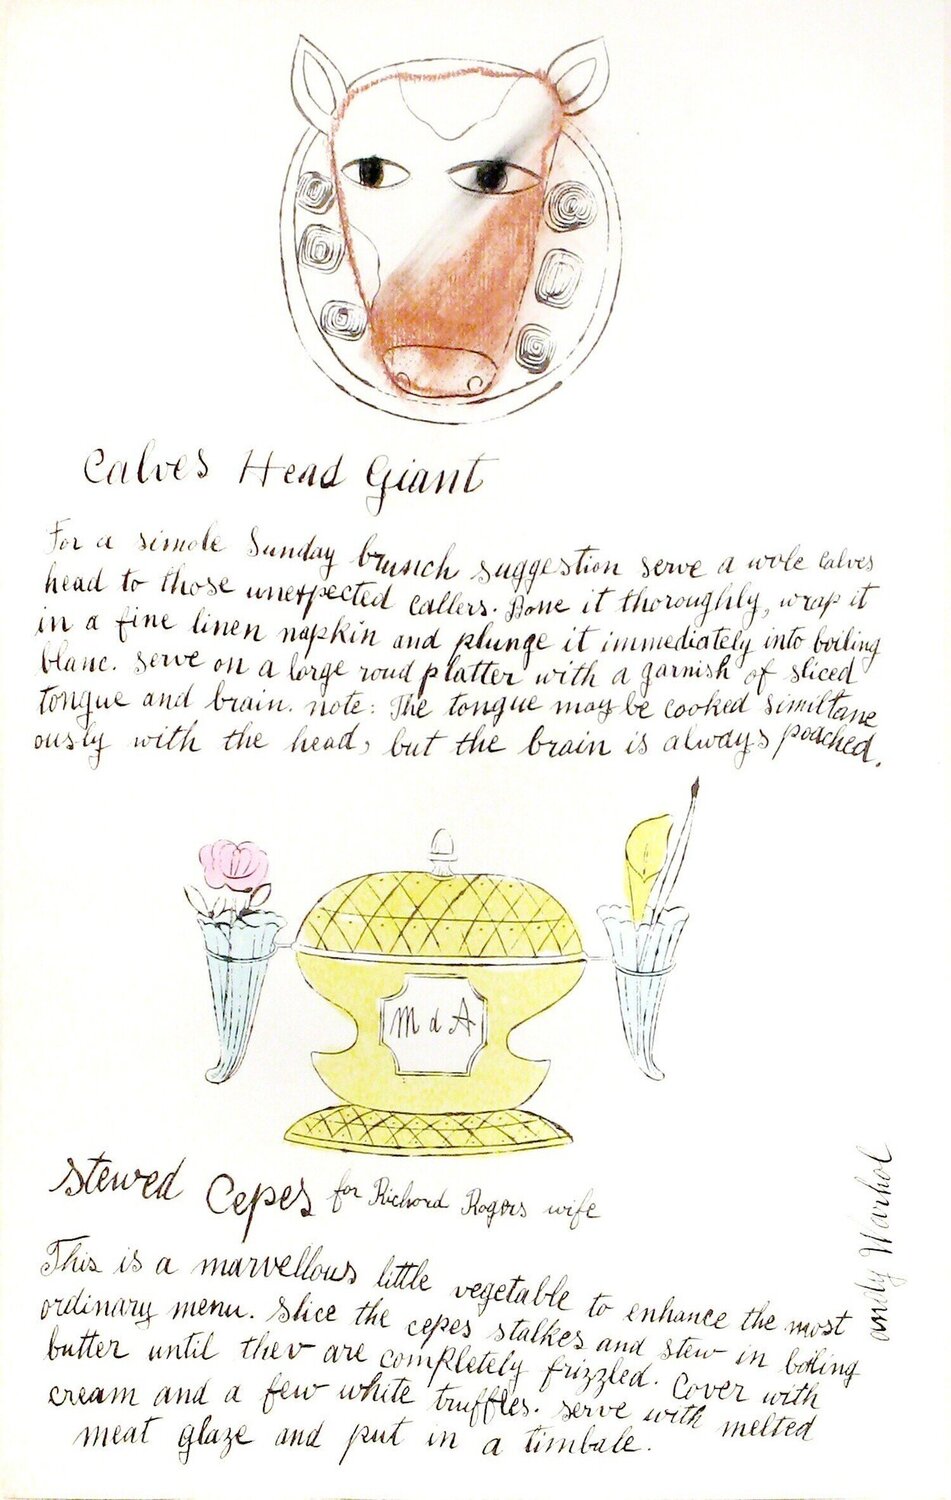 Calves Head Giant
For a simole Sunday brunch suggestion serve a wole calves
head to those unexpected callers. Bone it thoroughly, wrap it
in a fine linen napkin and plunge it immediately into boiling
blanc. serve on a large roud platter with a garnish of sliced
tongue and brain. note: The tongue may be cooked similtane
ously with the head, but the brain is always poached.
M d A
Stewed Cepes for Richard Rogers wife
This is a marvellous little vegetable to enhance the most
ordinary menu. slice the cepes stalkes and stew in boiling
butter until thev are completely frizzled. Cover with
cream and a few white truffles. serve with melted
meat glaze and put in a timbale.
andy Warhol